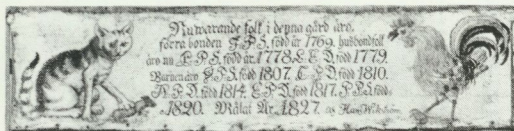 Nuwarande folk i denna gård äro.
förra bonden J.P.S. född år 1769. husbondfolk
äro nu P.P.S. född år 1778. L.E.D. född 1779.
Barnen äro J.P.S. född 1807. C.P.D. född 1810.
A.P.D. född 1814. E.P.D. född 1817. P.P.S. född
1820. Målat År 1827. av